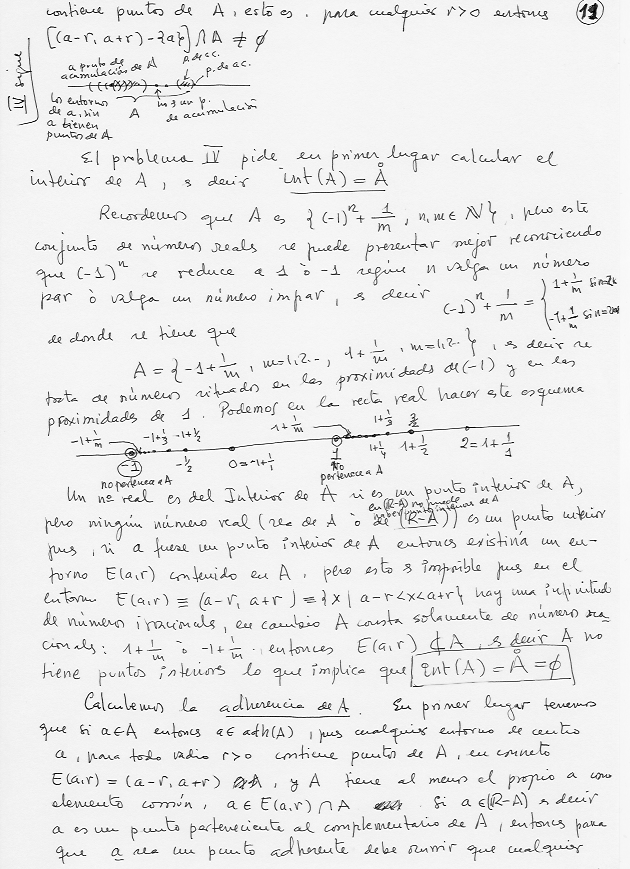 contiene puntos de A, esto es, para cualquier r>0 entonces
(19)
[(a-r, a+r) - {a}] ∩ A ≠ ∅
IV sigue
a punto de acumulación de A
p. de ac.
p. de ac.
los entornos de a, sin a tienen puntos de A
A
no es un p. de acumulación
El problema IV pide en primer lugar calcular el
interior de A, es decir int(A) = Å
Recordemos que A es {(-1)^n + 1/m, n,m∈ℕ}, pero este
conjunto de números reales se puede presentar mejor reconociendo
que (-1)^n se reduce a 1 ò -1 según n valga un número
par ò valga un número impar, es decir (-1)^n + 1/m = { 1+1/m si n=2k
-1+1/m si n=
de donde se tiene que
A = {-1+1/m, m=1,2..., 1+1/m, m=1,2..}, es decir se
trata de números situados en las proximidades de (-1) y en las
proximidades de 1. Podemos en la recta real hacer este esquema
-1+1/m -1+1/3 -1+1/2 1+1/m 1+1/3 3/2
-1 -1/2 0=-1+1/1 1 1+1/4 1+1/2 2=1+1/1
no pertenece a A no pertenece a A
Un nº real es del Interior de A si es un punto interior de A,
en (R-A) no puede haber puntos interiores de A
pero ningún número real (sea de A ò de (R-A)) es un punto interior
pues, si a fuese un punto interior de A entonces existiría un en-
torno E(a,r) contenido en A, pero esto es imposible pues en el
entorno E(a,r) ≡ (a-r, a+r) ≡ {x | a-r<x<a+r} hay una infinitud
de números irracionales, en cambio A consta solamente de números ra-
cionales: 1+1/m ò -1+1/m. entonces E(a,r) ⊄ A, es decir A no
tiene puntos interiores lo que implica que int(A) = Å = ∅
Calculemos la adherencia de A. En primer lugar tenemos
que si a∈A entonces a∈adh(A), pues cualquier entorno de centro
a, para todo radio r>0 contiene puntos de A, en concreto
E(a,r) = (a-r, a+r), y A tiene al menos el propio a como
elemento común, a∈E(a,r)∩A. Si a∈(R-A) es decir
a es un punto perteneciente al complementario de A, entonces para
que a sea un punto adherente debe ocurrir que cualquier